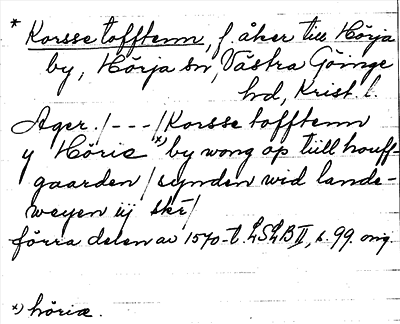 * Korsse tofftenn, f. åker till Hörja
by, Hörja sn, Västra Göinge
hd, Krist. l.
Ager. /- - -/ Korsse tofftenn
y Hörie x) by wong op tiill houff-
gaarden / synden wid lande-
weyen iij skr/
förra delen av 1570-t. LSLB II, s. 99. orig.
x) höriæ.